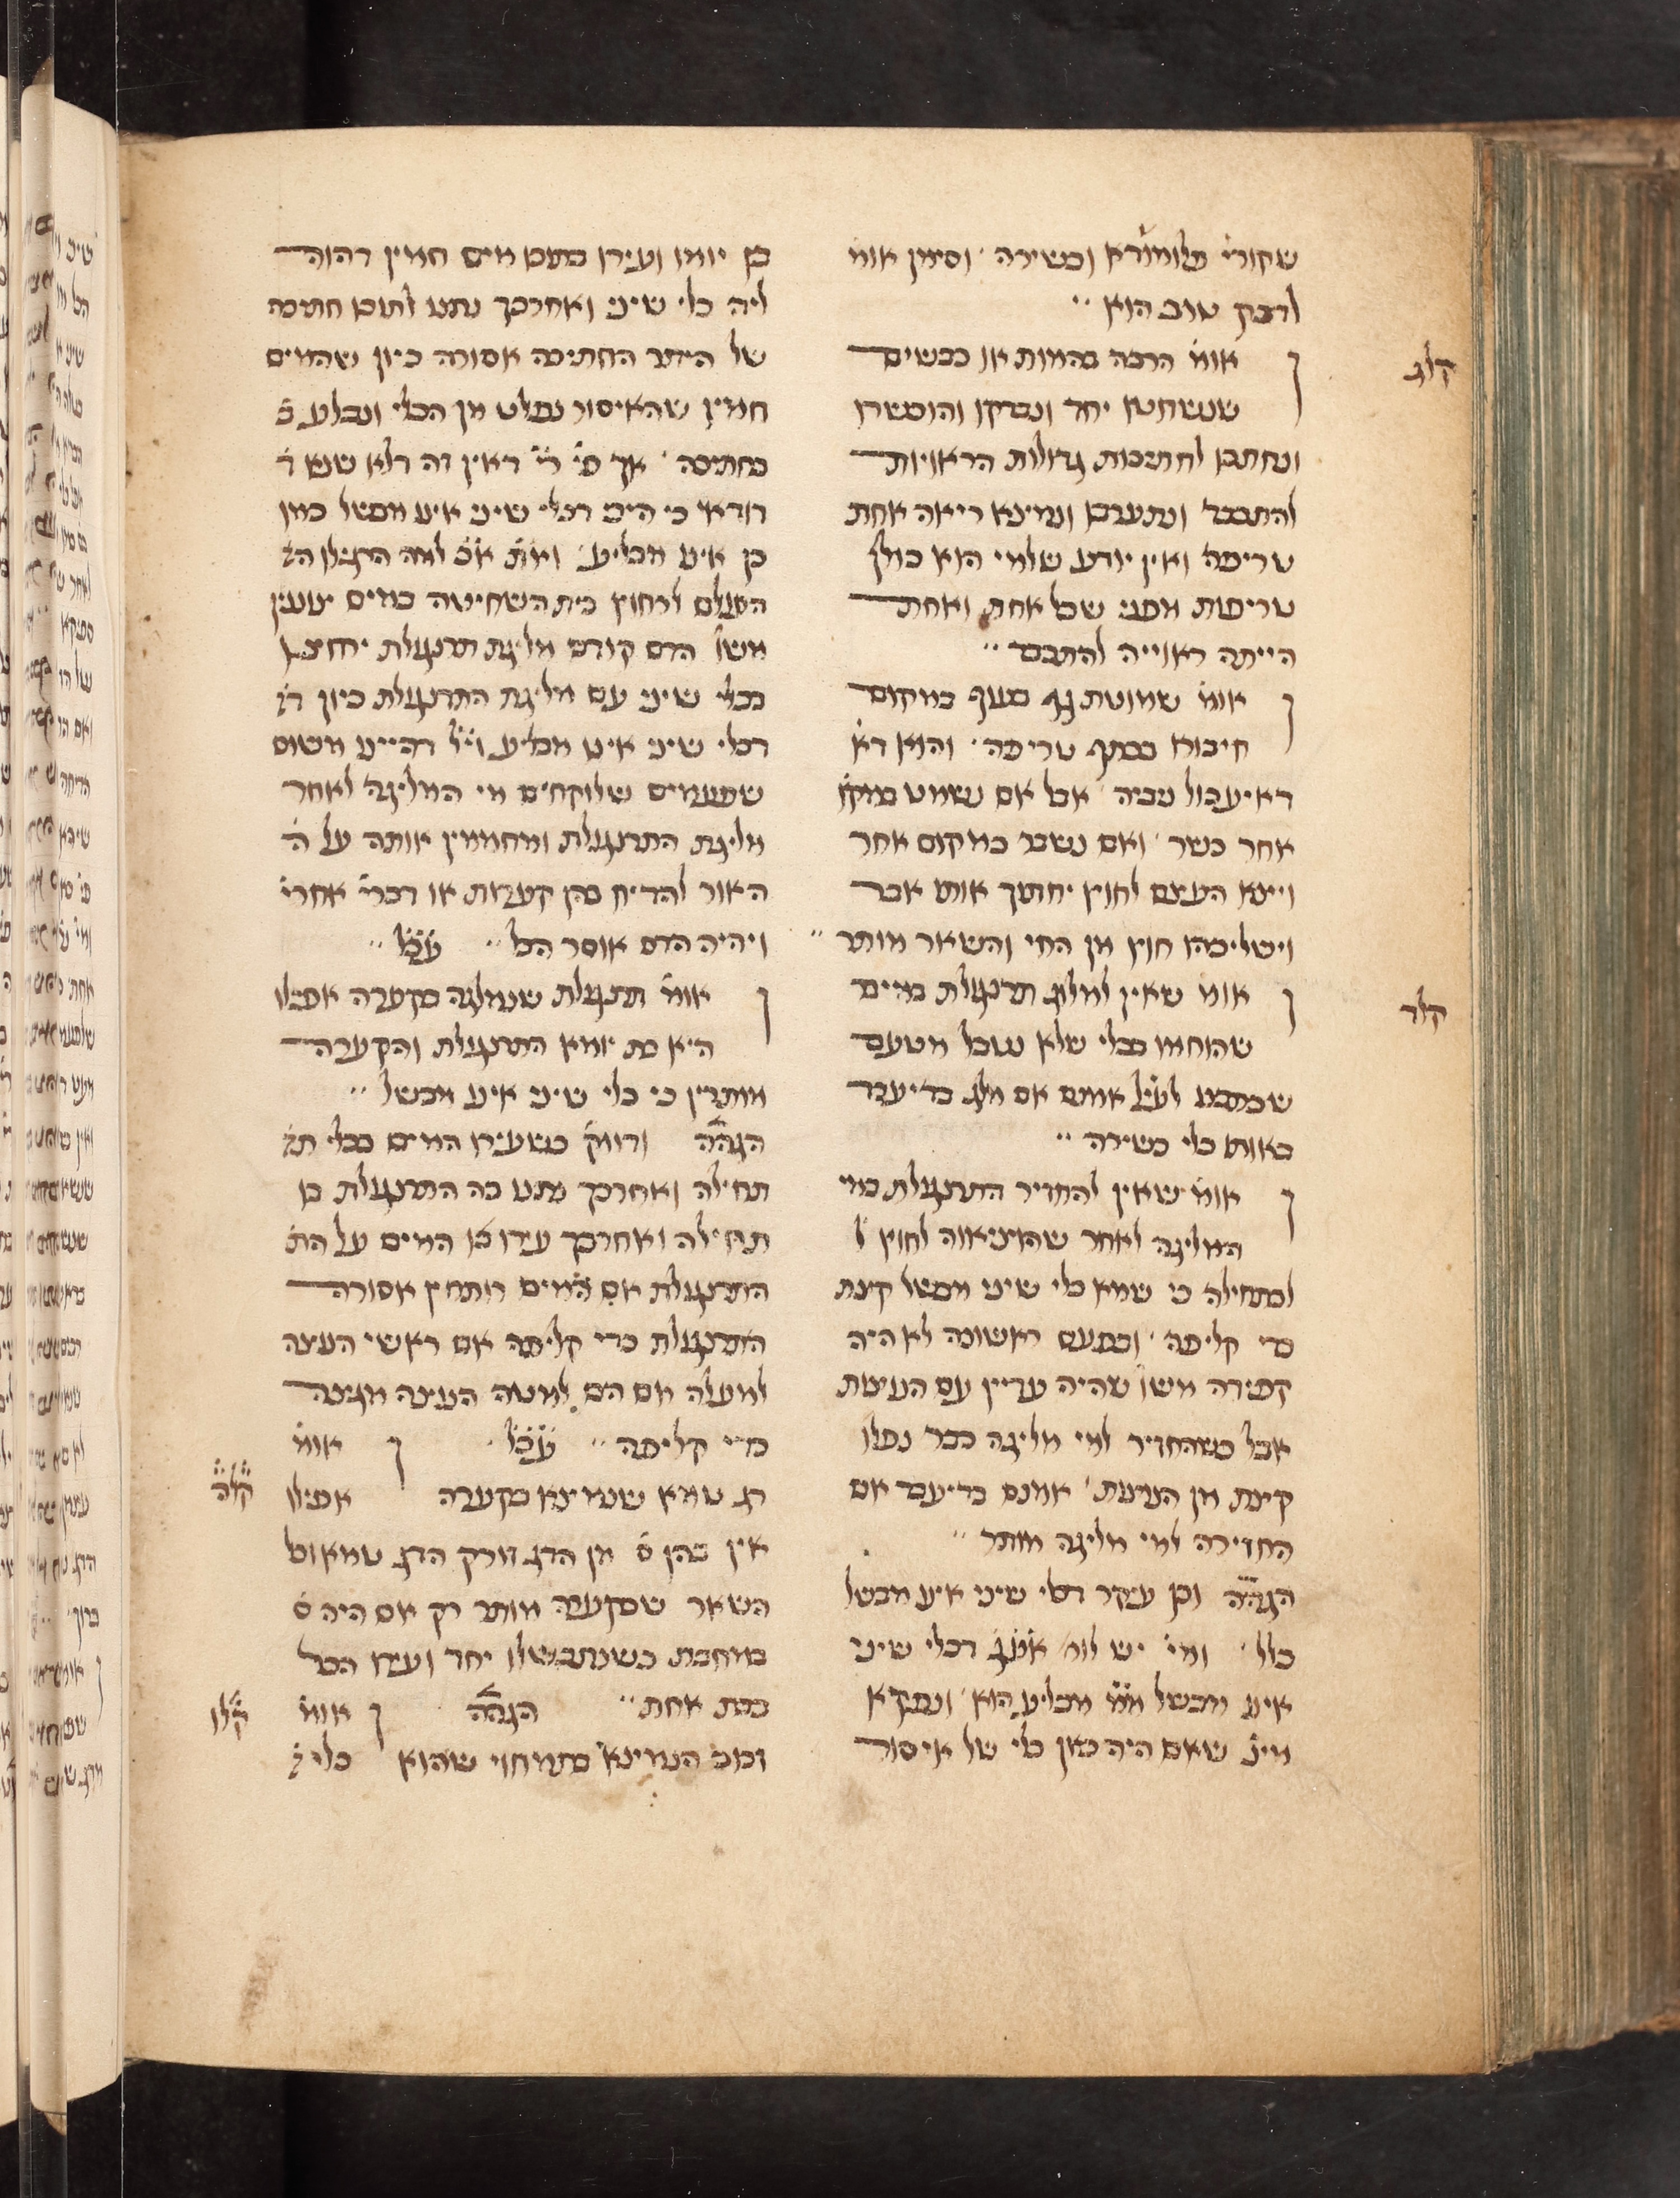 שקורי מלומורא וכשירה׳ וסימן אומ׳
לדבק טוב הוא
קלג
ן אומ׳ הרבה בהמות או כבשים
שנשחטו יחד ונבדקו והוכשרו
ונחתכו לחתיכות גדולות הראויות
להתכבד ונתערבו ונמצא ריאה אחת
טריפה ואין יודע של מי הוא כולן
טריפות מפני שכל אחת ואחת
הייתה ראוייה להתכבד
ן אומ׳ שמוטת גף בעוף במקום
חיבורו בגוף טריפה׳ והוא דא׳
דאיעכול ניביה׳ אבל אם נשמט במקו׳
אחר כשר׳ ואם נשבר במקום אחר
ויצא העצם לחוץ יחתוך אותו אבר
וישליכהו חוץ מן החי והשאר מותר
קלד
ן אומ׳ שאין למלוג תרנגולת במים
שהוחמו בכלי שלא נוכל מטעם
שכתבנו לעיל אמנם אם מלג בדיעבד
באותו כלי כשירה
ן אומ׳ שאין להחזיר התרנגולת במי
המליגה לאחר שהוציאוה לחוץ ל׳
לכתחילה כי שמא כלי שיני מבשל קצת
כדי קליפה׳ ובפעם ראשונה לא היה
קפידה משו׳ שהיה עדיין עם הנוצות
אבל כשהחזיר למי מליגה כבר נפלו
קצת מן הנוצות׳ אמנם בדיעבד אם
החזירה למי מליגה מותר
הגהה וכן עיקר דכלי שיני אינו מבשל
כלל׳ ומי׳ יש לומ׳ אעג דכלי שיני
אינו מבשל מ״מ מבליע הוא׳ ונפקא
מינ׳ שאם היה כאן כלי של איסור
בן יומו ועירו בתוכו מים חמין דהוה
ליה כלי שיני ואחרכך נתנו לתוכו חתיכה
של היתר החתיכה אסורה כיון שהמים
חמין שהאיסור נפלט מן הכלי ונבלע ב׳
בחתיכה׳ אך מ׳ ר״י דאין זה דלא שנא ד׳
דודאי כי היכי דכלי שיני אינו מבשל כמו
כן אינו מבליע׳ וא״ת א״כ למה הרגילו ה׳
העולם לרחוץ בית השחיטה במים צוננין
משו׳ הדם קודם מליגת תרנגולת ירחיצו
בכלי שיני עם מליגת התרנגולת כיון ד׳
דכלי שיני אינו מבליע׳ וי״ל דהיינו משום
שפעמים שלוקחים מי המליגה לאחר
מליגת התרנגולת ומחממין אותה על ה׳
האור להדיח בהן קערות או דברי׳ אחרי׳
ויהיה הדם אוסר הכל עכ״ל
ן אומ׳ תרנגולת שנמלגה בקערה אפילו
היא בת יומא התרנגולת והקערה
מותרין כי כלי שיני אינו מבשל
הגהה ודווק׳ כשעירו המים בכלי ת׳
תחילה ואחרכך נתנו בה התרנגולת בו
תחילה ואחרכך עירו בו המים על הת׳
התרנגולת אם המים רותחין אסורה
התרנגולת כדי קליפה אם ראשי הנוצה
למעלה ואם הם למטה הנוצה מגינה
כדי קליפה עכ״ל
קלה
ן אומ׳
דג טמא שנמצא בקערה אפילו
אין בהן ס׳ מן הדג זורק הדג טמא וכל
השאר שבקערה מותר רק אם היה ס׳
במחבת כשנתבשלו יחד ועירו הכל
בבת אחת הגהה
קלו
ן אומ׳
זבוב הנמצא בתמחוי שהוא כלי ל׳